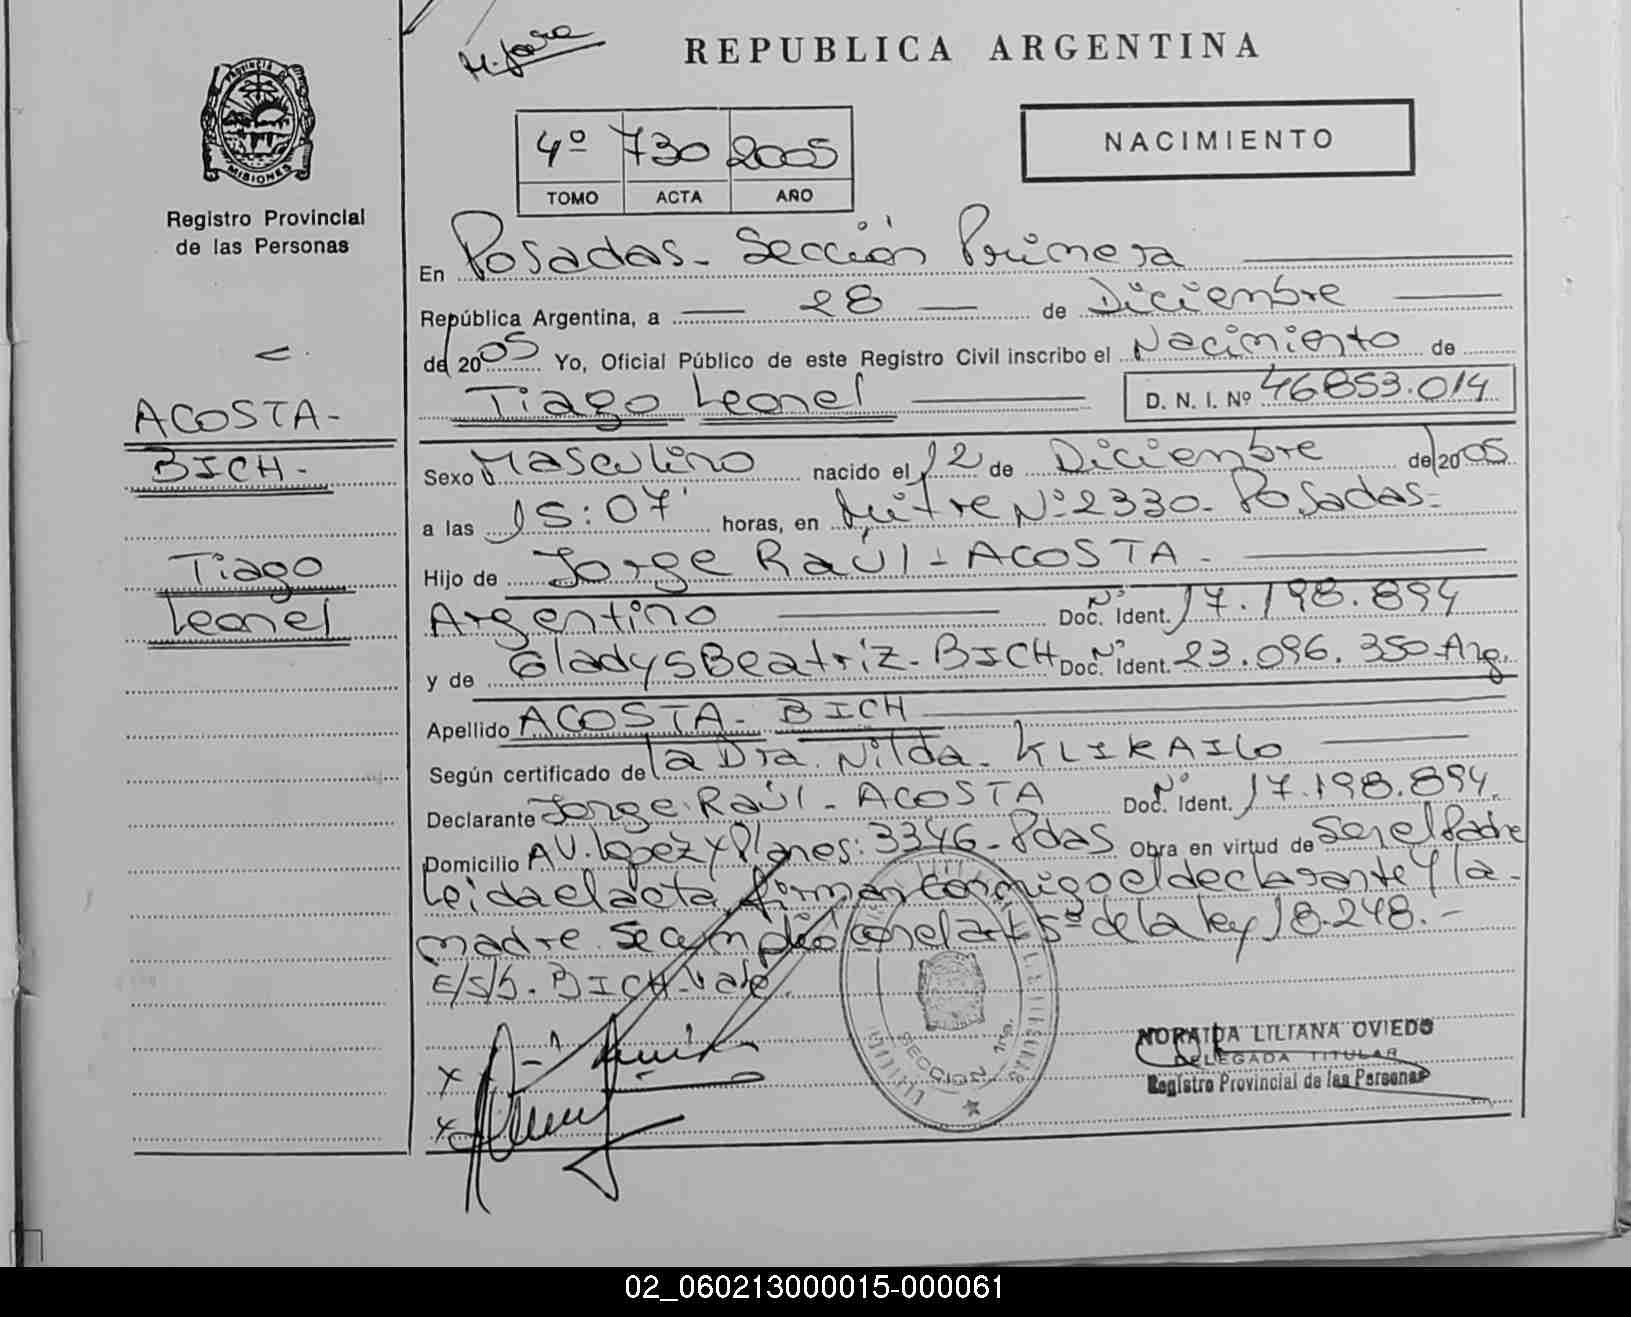 M. Jara
REPUBLICA ARGENTINA
PROVINCIA DE
MISIONES
Registro Provincial
de las Personas
4º 730 2005
TOMO ACTA AÑO
NACIMIENTO
En Posadas - Sección Primera
República Argentina, a 28 de Diciembre
de 2005 Yo, Oficial Público de este Registro Civil inscribo el Nacimiento de
Tiago Leonel D. N. I. Nº 46853.014
ACOSTA-
BICH-
Tiago
Leonel
Sexo Masculino nacido el 12 de Diciembre de 2005
a las 15:07' horas, en Mitre Nº 2330- Posadas=
Hijo de Jorge RAÚL - ACOSTA -
Argentino Nº Doc. Ident. 17.198.894
y de Gladys Beatriz - BICH Nº Doc. Ident. 23.096.350 Arg.
Apellido ACOSTA - BICH
Según certificado de la Dra. Nilda - KLIKAILO
Declarante Jorge RAÚL - ACOSTA Nº Doc. Ident. 17.198.894
Domicilio AV. Lopez y Planes: 3346- Pdas Obra en virtud de Ser el Padre
Leida el acta, firman conmigo el declarante y la
madre. Se cumplió con el art 5º de la Ley 18.248.-
E/S/b. BICH. Vale.
x
x
SECCION 1ra.
NORAIDA LILIANA OVIEDO
DELEGADA TITULAR
Registro Provincial de las Personas
02_060213000015-000061